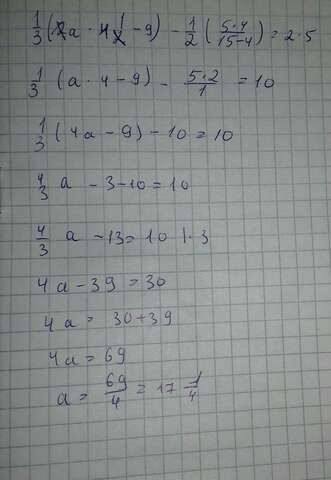 1/3 (2a · 4 1/2 - 9) - 1/2 (5·4/15-4) = 2·5
1/3 (a · 4 - 9) - 5·2/1 = 10
1/3 (4a - 9) - 10 = 10
4/3 a - 3 - 10 = 10
4/3 a - 13 = 10 |·3
4a - 39 = 30
4a = 30+39
4a = 69
a = 69/4 = 17 1/4